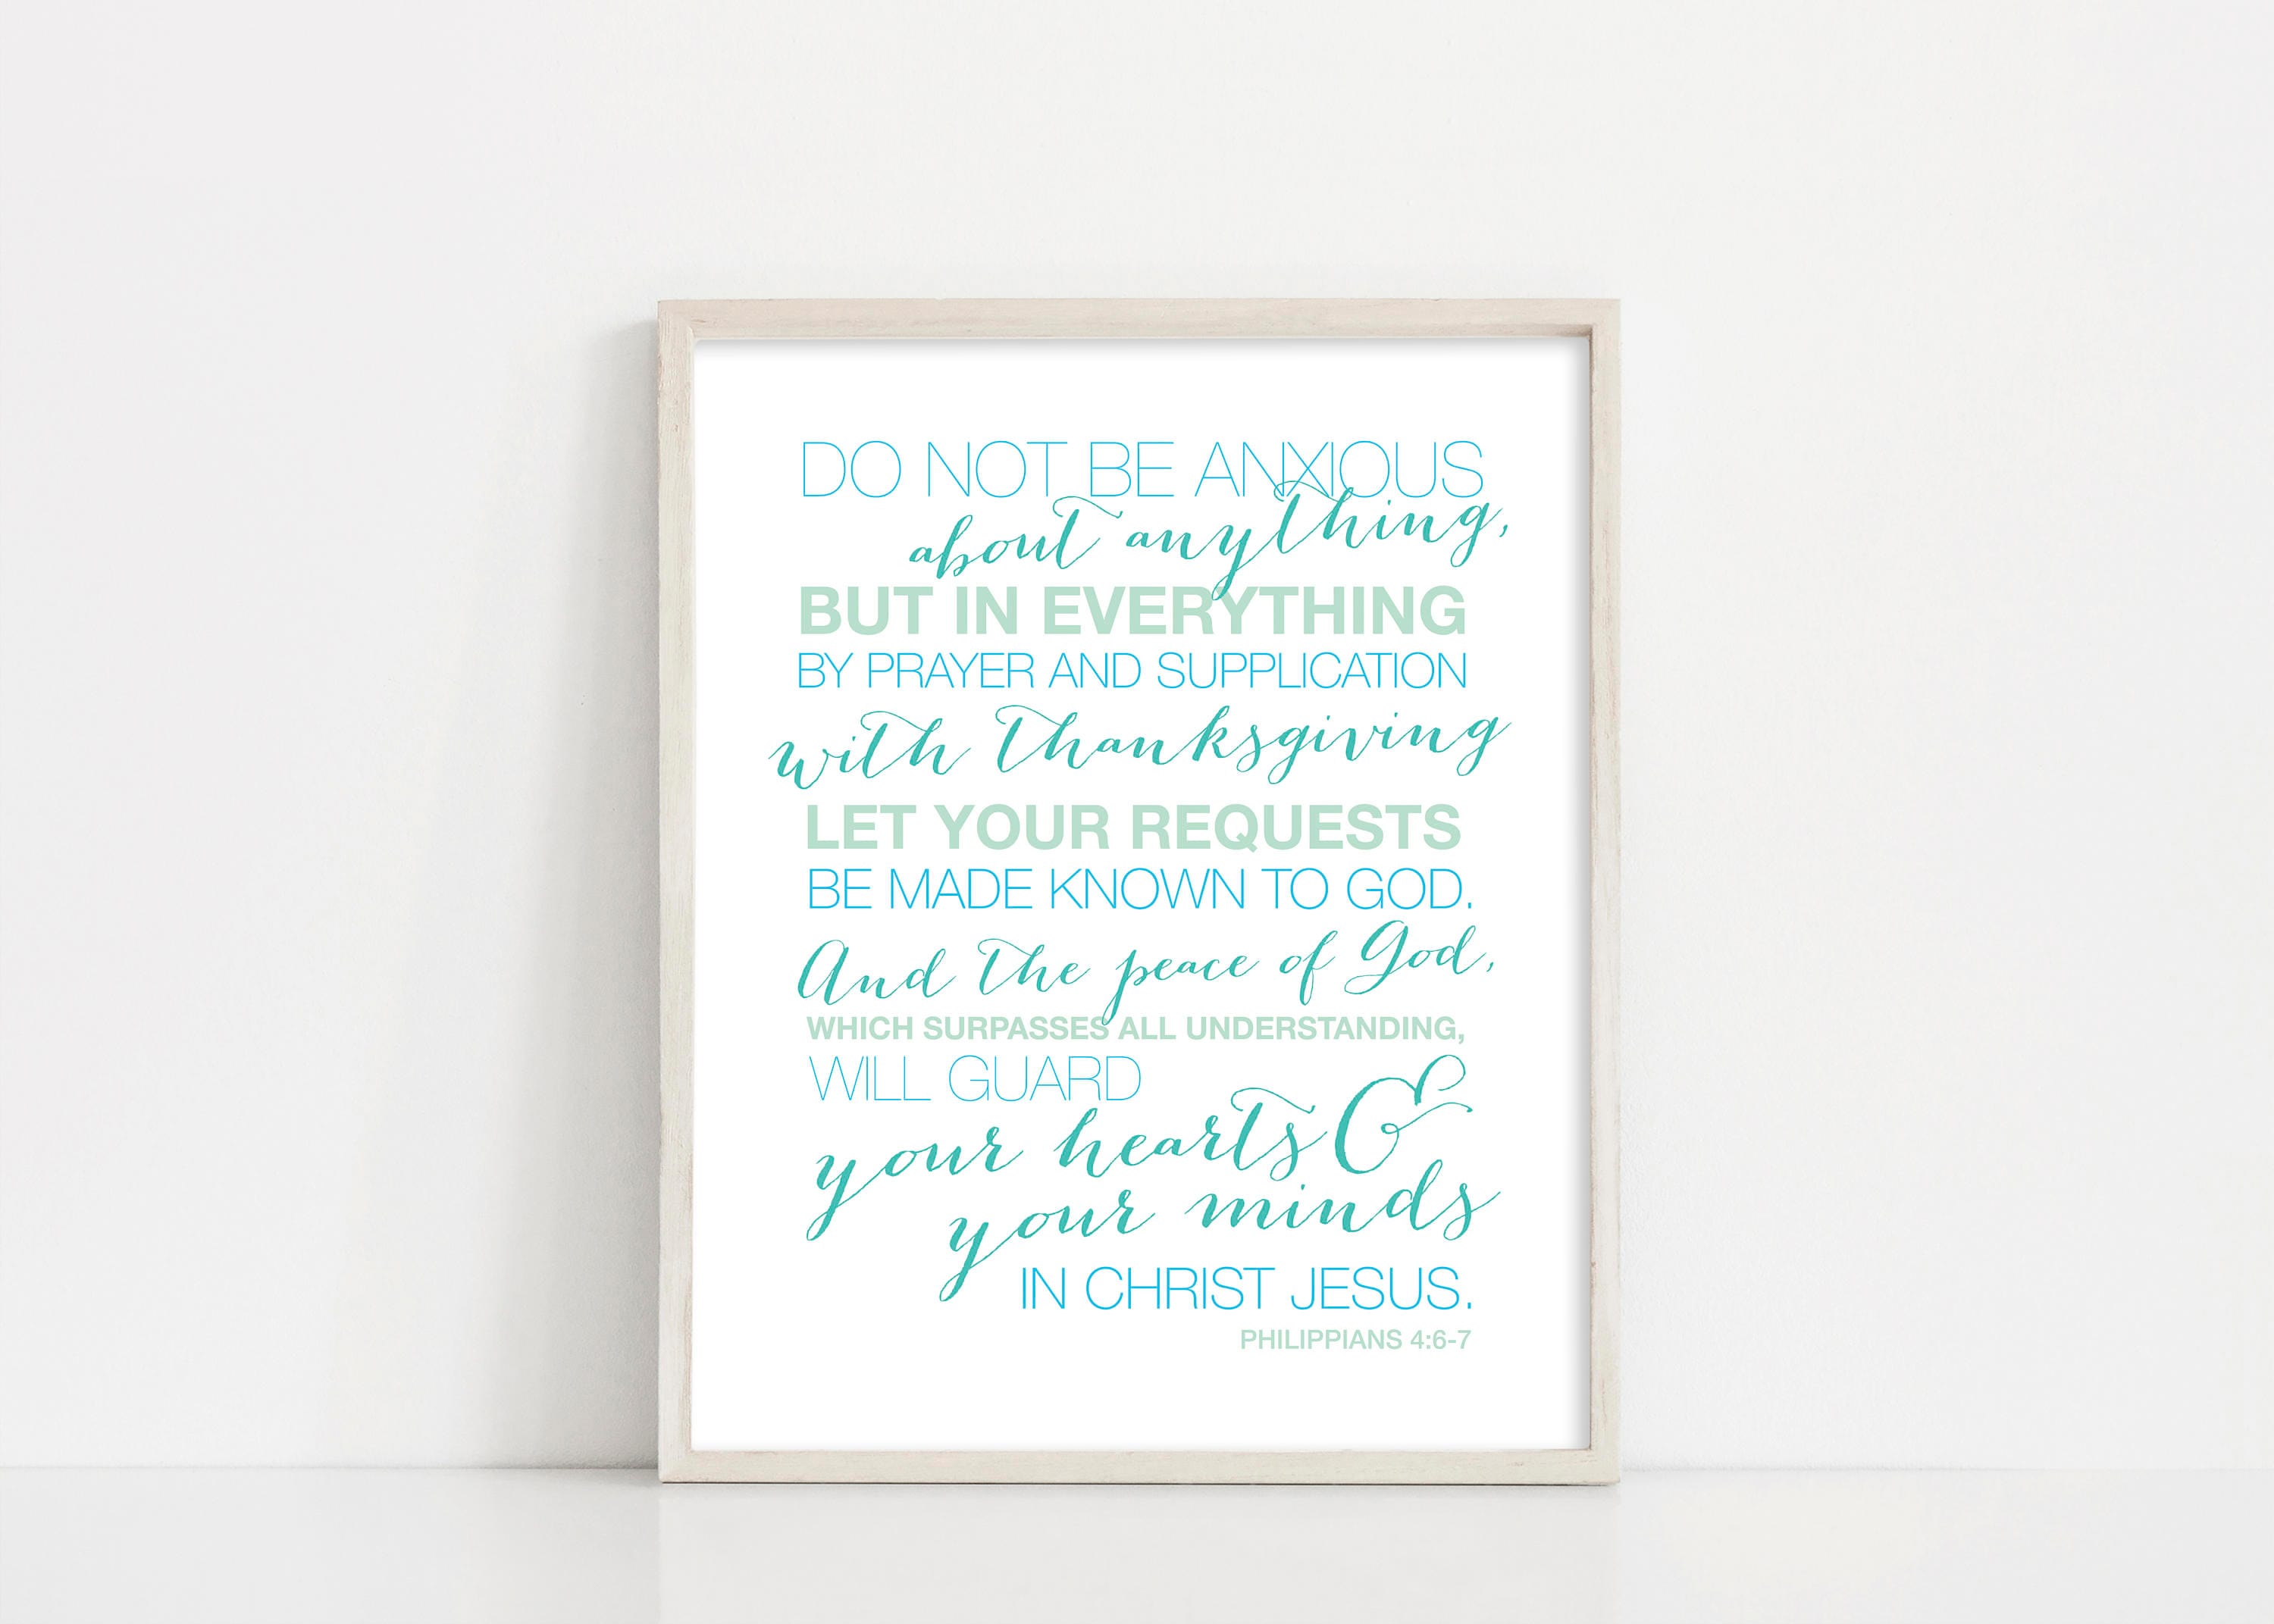 DO NOT BE ANXIOUS
about anything,
BUT IN EVERYTHING
BY PRAYER AND SUPPLICATION
with thanksgiving
LET YOUR REQUESTS
BE MADE KNOWN TO GOD.
And the peace of God,
WHICH SURPASSES ALL UNDERSTANDING,
WILL GUARD
your hearts &
your minds
IN CHRIST JESUS.
PHILIPPIANS 4:6-7